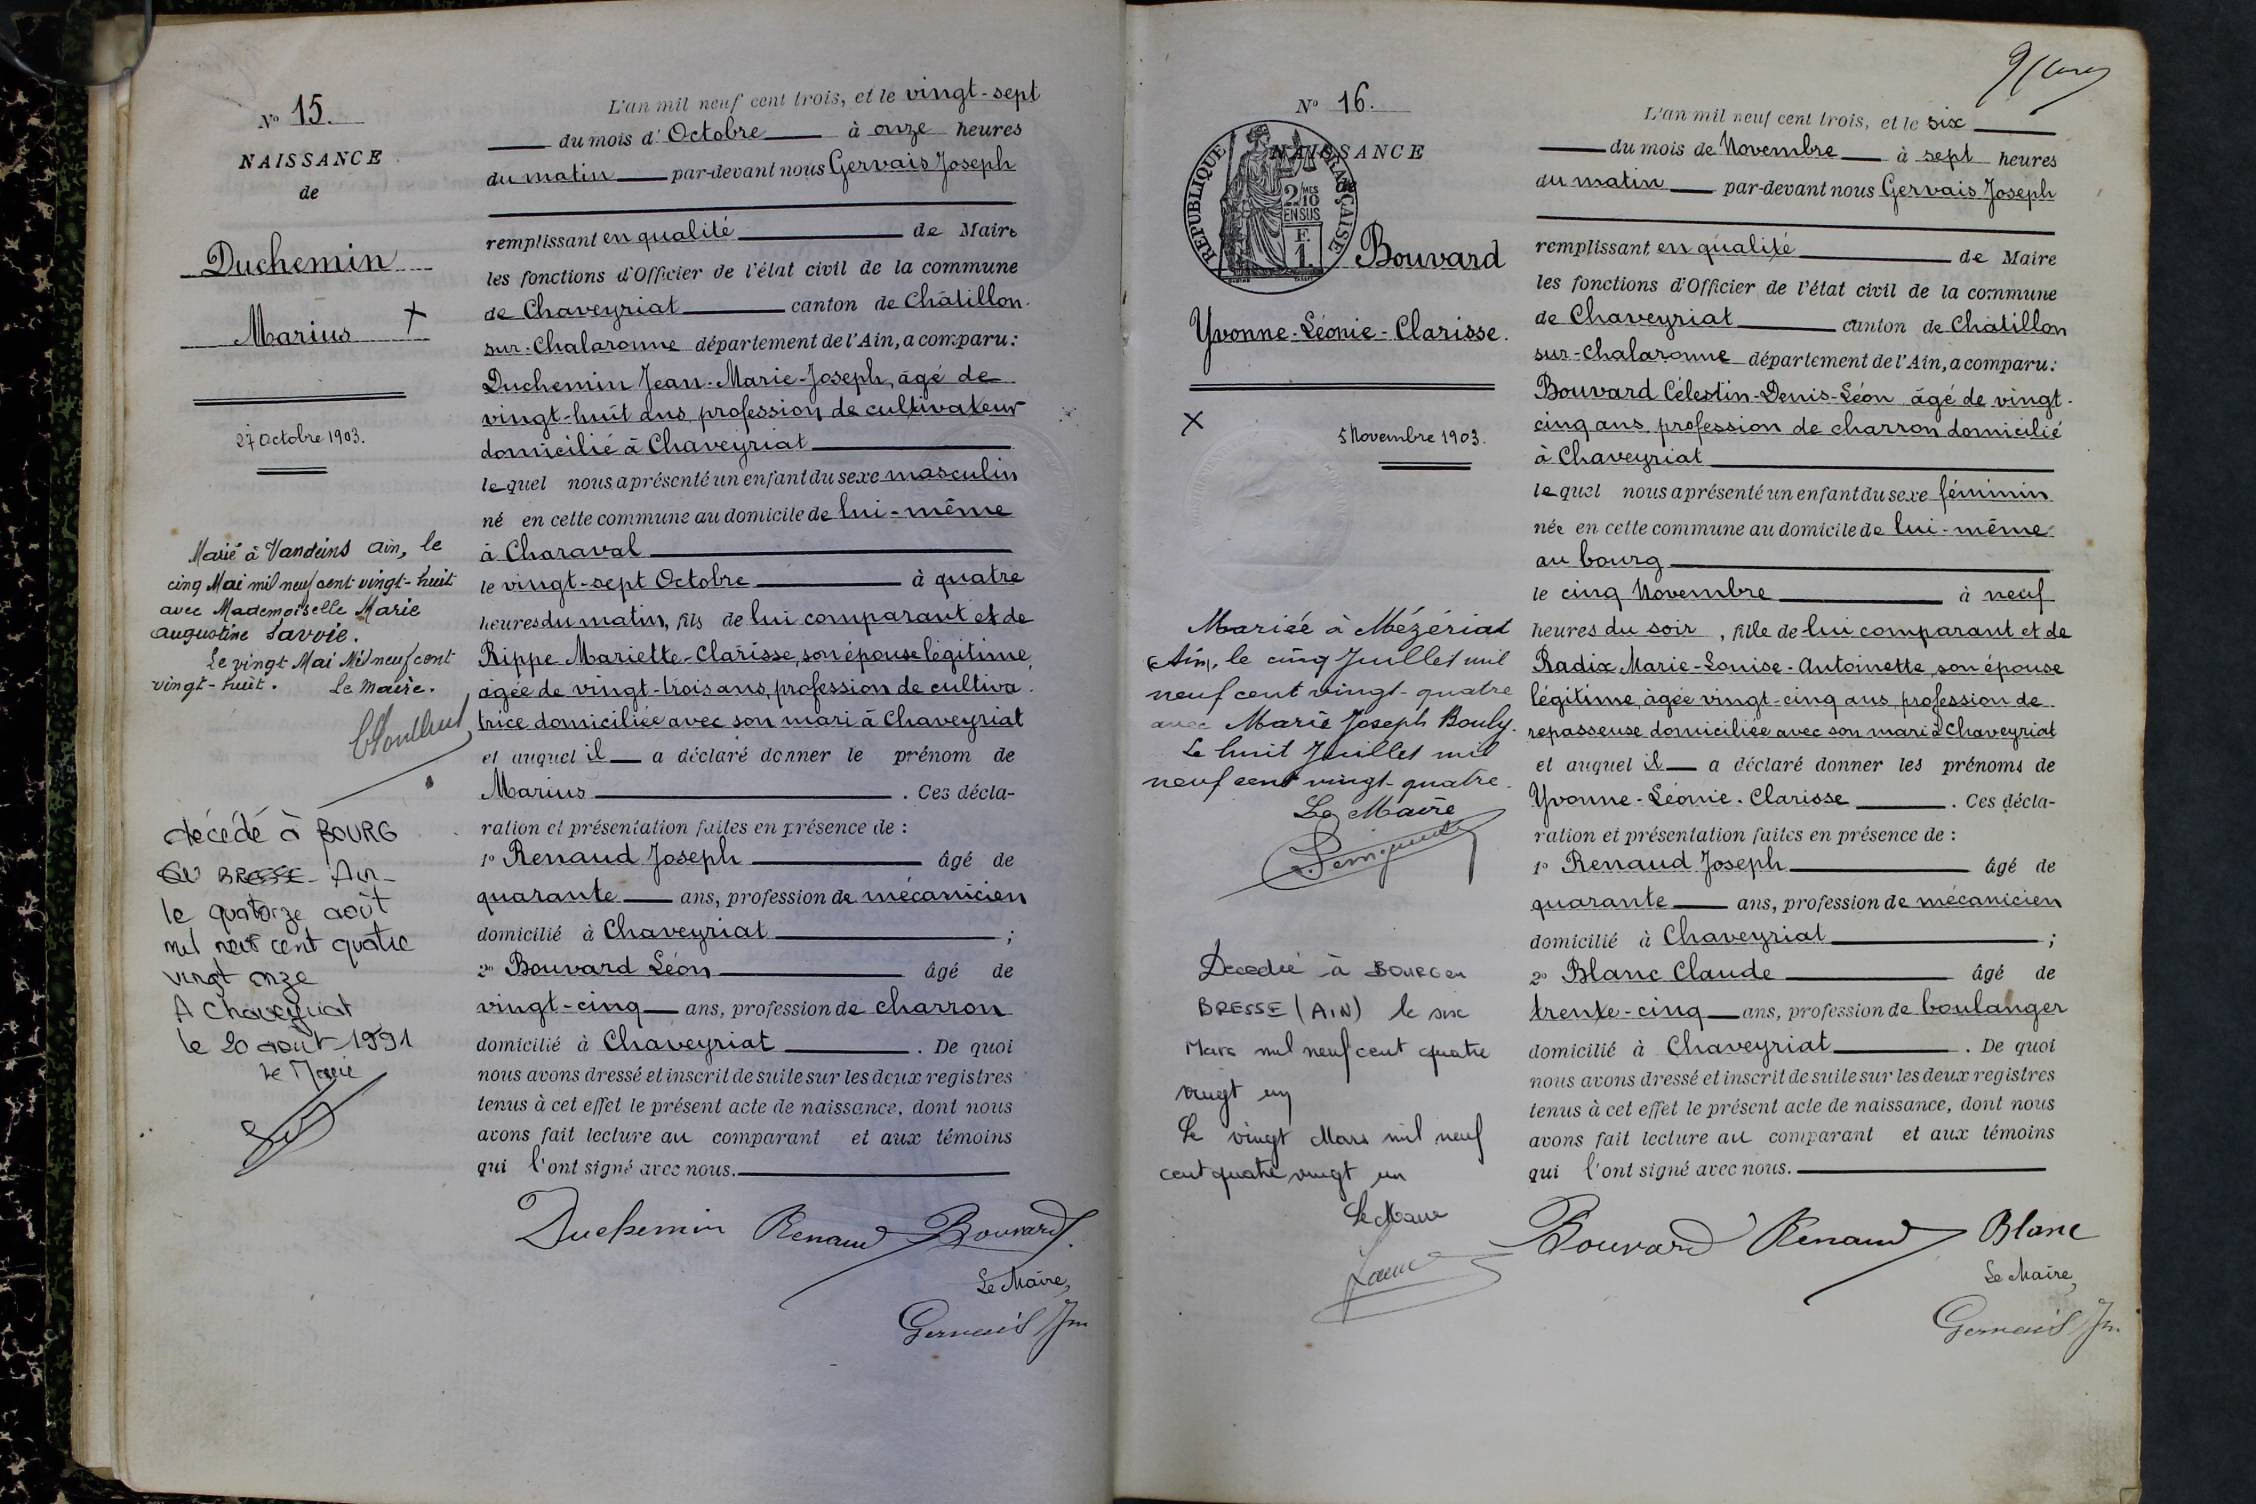 N° 15.
NAISSANCE
de
Duchemin
Marius
27 Octobre 1903.
Marié à Vandeins Ain, le
cinq Mai mil neuf cent vingt-huit
avec Mademoiselle Marie
Augustine Savoie.
Le vingt Mai Mil neuf cent
vingt-huit. Le Maire.
décédé à BOURG
EN BRESSE - Ain -
le quatorze août
mil neuf cent quatre
vingt onze
A Chaveyriat
le 20 août 1991
Le Maire
L'an mil neuf cent trois, et le vingt-sept
du mois d'Octobre à onze heures
du matin par-devant nous Gervais Joseph
remplissant en qualité de Maire
les fonctions d'Officier de l'état civil de la commune
de Chaveyriat canton de Châtillon-
sur-Chalaronne département de l'Ain, a comparu:
Duchemin Jean-Marie-Joseph, âgé de
vingt-huit ans, profession de cultivateur
domicilié à Chaveyriat
lequel nous a présenté un enfant du sexe masculin
né en cette commune au domicile de lui-même
à Charaval
le vingt-sept Octobre à quatre
heures du matin, fils de lui comparant et de
Rippe Mariette-Clarisse, son épouse légitime,
âgée de vingt-trois ans, profession de cultiva-
trice domiciliée avec son mari à Chaveyriat
et auquel il a déclaré donner le prénom de
Marius . Ces décla-
ration et présentation faites en présence de :
1° Renaud Joseph âgé de
quarante ans, profession de mécanicien
domicilié à Chaveyriat ;
2° Bouvard Léon âgé de
vingt-cinq ans, profession de charron
domicilié à Chaveyriat . De quoi
nous avons dressé et inscrit de suite sur les deux registres
tenus à cet effet le présent acte de naissance, dont nous
avons fait lecture au comparant et aux témoins
qui l'ont signé avec nous.
Duchemin Renaud Bouvard
Le Maire,
Gervais Jh
N° 16.
NAISSANCE
RÉPUBLIQUE FRANÇAISE
2/10 MES
EN SUS
F.
1.
Bouvard
Yvonne-Léonie-Clarisse.
5 Novembre 1903.
Mariée à Mézériat
(Ain), le cinq Juillet mil
neuf cent vingt-quatre
avec Marie Joseph Bouly.
Le huit Juillet mil
neuf cent vingt-quatre.
Le Maire
Décédée à BOURG en
BRESSE (AIN) le six
Mars mil neuf cent quatre
vingt un
Le vingt Mars mil neuf
cent quatre vingt un
Le Maire
L'an mil neuf cent trois, et le six
du mois de Novembre à sept heures
du matin par-devant nous Gervais Joseph
remplissant en qualité de Maire
les fonctions d'Officier de l'état civil de la commune
de Chaveyriat canton de Châtillon
sur-Chalaronne département de l'Ain, a comparu:
Bouvard Célestin-Denis-Léon âgé de vingt-
cinq ans, profession de charron domicilié
à Chaveyriat
lequel nous a présenté un enfant du sexe féminin
née en cette commune au domicile de lui-même
au bourg
le cinq Novembre à neuf
heures du soir, fille de lui comparant et de
Radix Marie-Louise-Antoinette, son épouse
légitime, âgée vingt-cinq ans, profession de
repasseuse domiciliée avec son mari à Chaveyriat
et auquel il a déclaré donner les prénoms de
Yvonne-Léonie-Clarisse . Ces décla-
ration et présentation faites en présence de :
1° Renaud Joseph âgé de
quarante ans, profession de mécanicien
domicilié à Chaveyriat ;
2° Blanc Claude âgé de
trente-cinq ans, profession de boulanger
domicilié à Chaveyriat . De quoi
nous avons dressé et inscrit de suite sur les deux registres
tenus à cet effet le présent acte de naissance, dont nous
avons fait lecture au comparant et aux témoins
qui l'ont signé avec nous.
Bouvard Renaud Blanc
Le Maire,
Gervais Jh